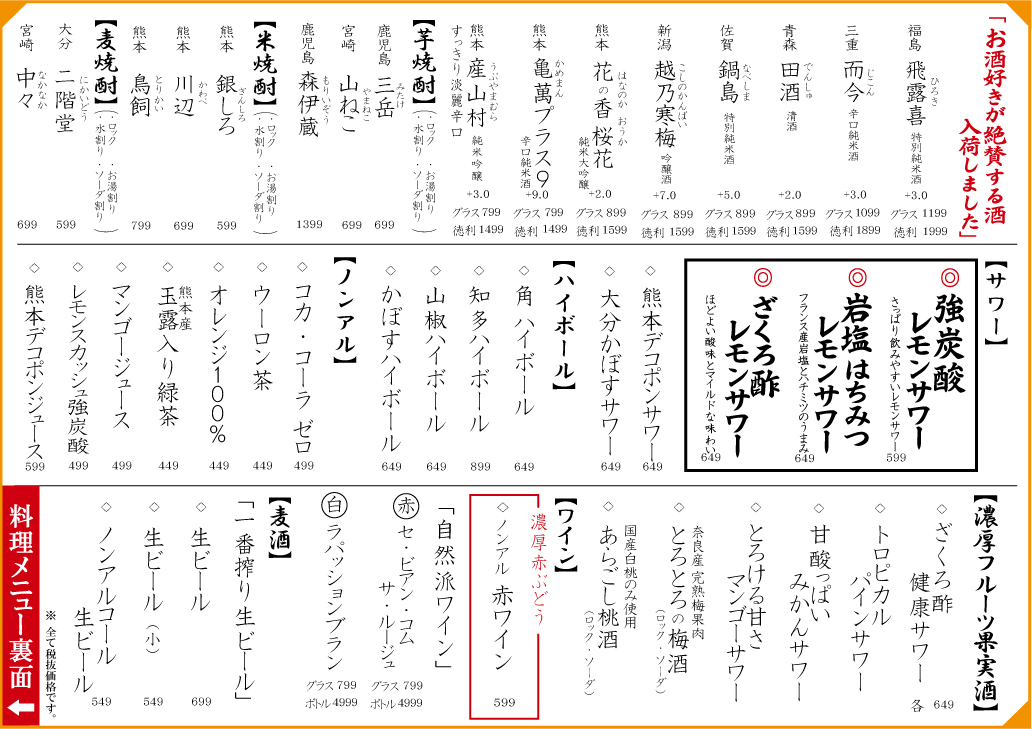 「お酒好きが絶賛する酒
入荷しました」
福島 飛露喜 ひろき 特別純米酒 +3.0 グラス 1199 徳利 1999
三重 而今 じこん 辛口純米酒 +3.0 グラス 1099 徳利 1899
青森 田酒 でんしゅ 清酒 +2.0 グラス 899 徳利 1599
佐賀 鍋島 なべしま 特別純米酒 +5.0 グラス 899 徳利 1599
新潟 越乃寒梅 こしのかんばい 吟醸酒 +7.0 グラス 899 徳利 1599
熊本 花の香 桜花 はなのか おうか 純米大吟醸 +2.0 グラス 899 徳利 1599
熊本 亀萬プラス9 かめまん 辛口純米酒 +9.0 グラス 799 徳利 1499
熊本 産山村 うぶやまむら 純米吟醸 +3.0 グラス 799 徳利 1499
すっきり淡麗辛口
【芋焼酎】(・ロック ・お湯割り ・水割り ・ソーダ割り)
鹿児島 三岳 みたけ 699
宮崎 山ねこ やまねこ 699
鹿児島 森伊蔵 もりいぞう 1399
【米焼酎】(・ロック ・お湯割り ・水割り ・ソーダ割り)
熊本 銀しろ ぎんしろ 599
熊本 川辺 かわべ 699
熊本 鳥飼 とりかい 799
【麦焼酎】(・ロック ・お湯割り ・水割り ・ソーダ割り)
大分 二階堂 にかいどう 599
宮崎 中々 なかなか 699
【サワー】
◎ 強炭酸
レモンサワー
さっぱり飲みやすいレモンサワー 599
◎ 岩塩はちみつ
レモンサワー
フランス産岩塩とハチミツのうまみ 649
◎ ざくろ酢
レモンサワー
ほどよい酸味とマイルドな味わい 649
◇ 熊本デコポンサワー 649
◇ 大分かぼすサワー 649
【ハイボール】
◇ 角 ハイボール 649
◇ 知多ハイボール 899
◇ 山椒ハイボール 649
◇ かぼすハイボール 649
【ノンアル】
◇ コカ・コーラ ゼロ 499
◇ ウーロン茶 449
◇ オレンジ100% 449
◇ 熊本産 玉露入り緑茶 449
◇ マンゴージュース 499
◇ レモンスカッシュ強炭酸 499
◇ 熊本デコポンジュース 599
【濃厚フルーツ果実酒】
◇ ざくろ酢
健康サワー 各 649
◇ トロピカル
パインサワー
◇ 甘酸っぱい
みかんサワー
◇ とろける甘さ
マンゴーサワー
奈良産 完熟梅果肉
◇ とろとろの梅酒
(ロック・ソーダ)
国産白桃のみ使用
◇ あらごし桃酒
(ロック・ソーダ)
【ワイン】
濃厚赤ぶどう
◇ ノンアル 赤ワイン 599
「自然派ワイン」
赤 セ・ビアン・コム
サ・ルージュ
グラス 799
ボトル 4999
白 ラパッションブラン
グラス 799
ボトル 4999
【麦酒】
「一番搾り生ビール」
◇ 生ビール 699
◇ 生ビール (小) 549
◇ ノンアルコール
生ビール 549
※ 全て税抜価格です。
料理メニュー裏面